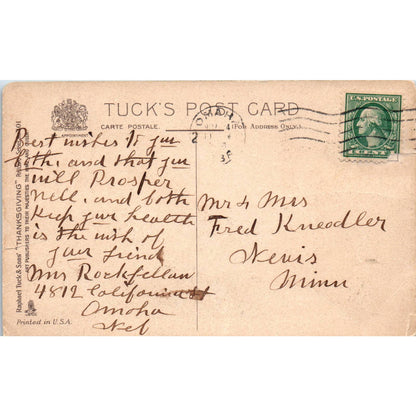 TUCK'S POST CARD
CARTE POSTALE.
(For Address Only.)
U.S. POSTAGE
CENTS
OMAHA
Best wishes to you
both, and that you
will Prosper
Nell, and both
Keep your health
is the wish of
your friend
Mrs Rockfellan
4812 California St
Omoha
Neb
Mr & Mrs
Fred Kneodler
Nevis
Minn
Raphael Tuck & Sons' "THANKSGIVING" Post Card Series No.
Printed in U.S.A.